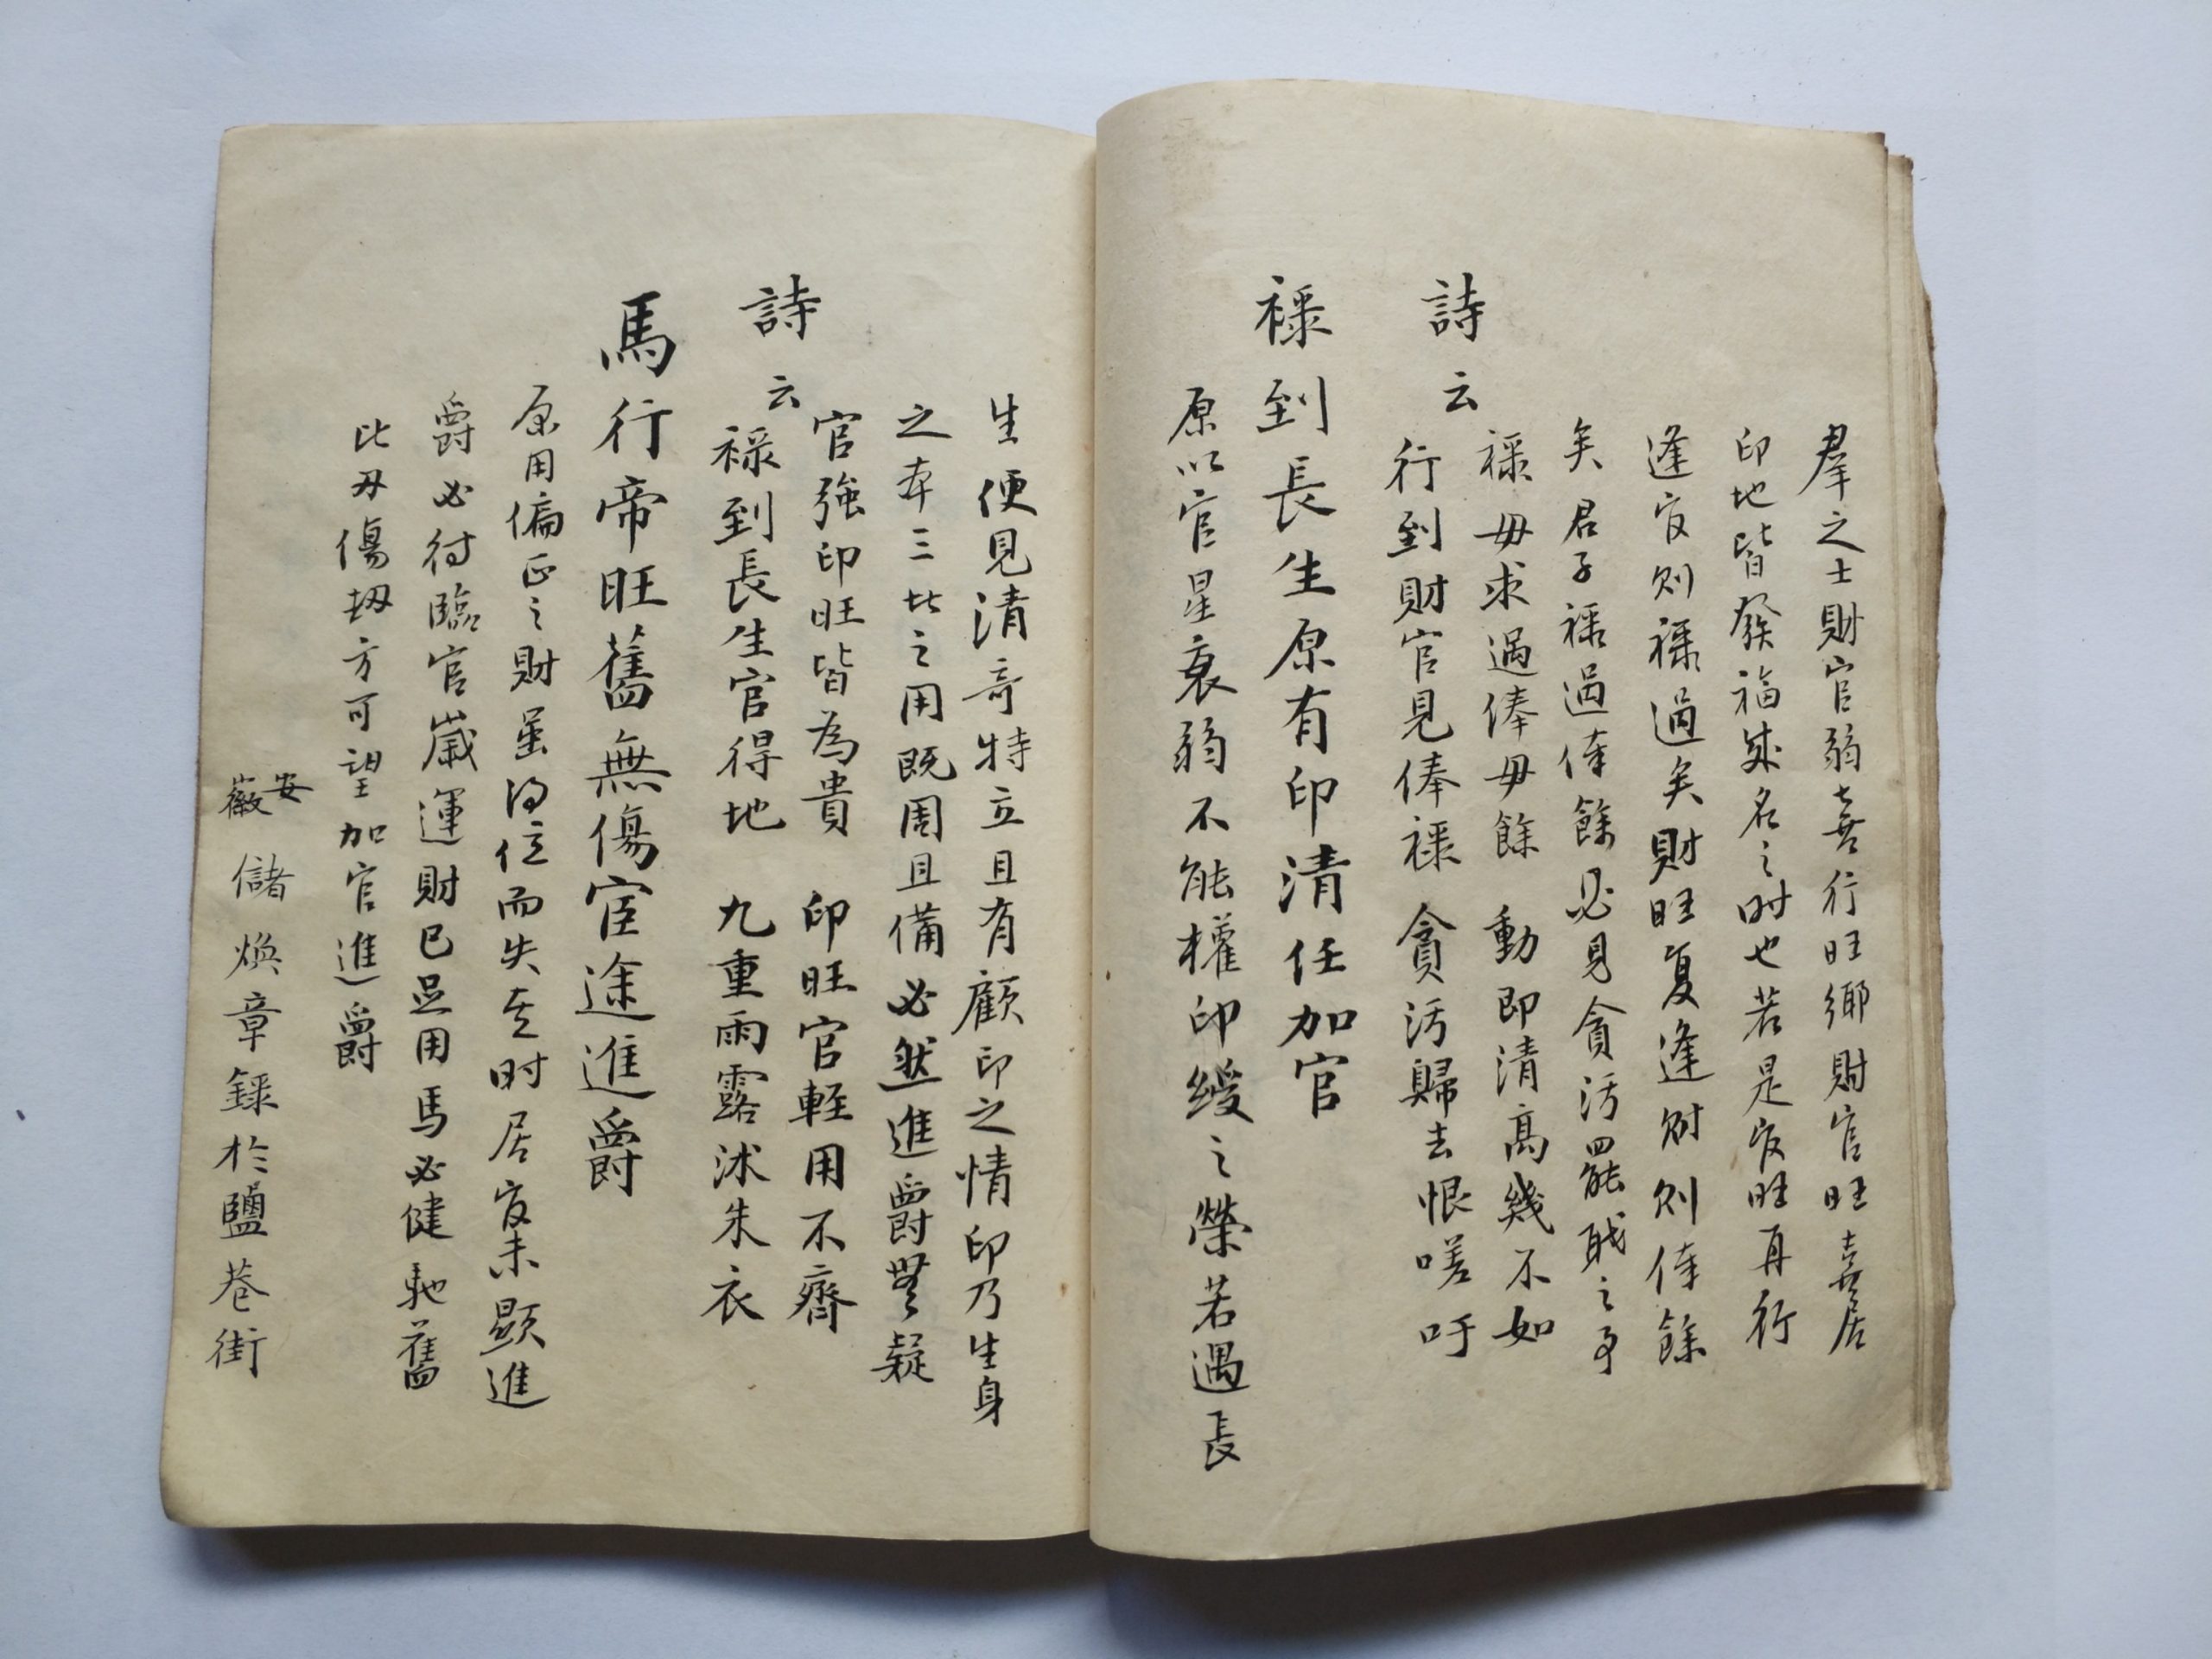 羣之士財官弱喜行旺鄉財官旺喜居
印地皆發福成名之时也若是官旺再行
逢官则祿過矣財旺复逢財则俸餘
矣君子祿過俸餘必見貪污罷職之事
祿毋求過俸毋餘　動即清高幾不如
詩云　行到財官見俸祿　貪污歸去恨嗟吁
祿到長生原有印清任加官
原以官星衰弱不能權印綬之榮若遇長
生便見清奇特立且有顧印之情印乃生身
之本三比之用既周且備必然進爵無疑
官強印旺皆為貴　印旺官輕用不齊
詩云　祿到長生官得地　九重雨露沭朱衣
馬行帝旺舊無傷宦途進爵
原用偏正之財虽得位而失去时居官未顯進
爵必待臨官歲運財已足用馬必健馳舊
比毋傷刼方可望加官進爵
安徽　儲煥章録於鹽巷街